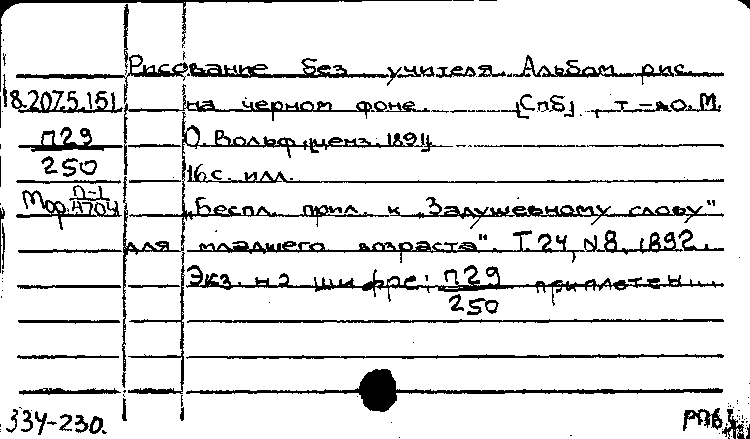 Рисование без учителя. Альбом рис.
18.207.5.151 на черном фоне. [Спб], т-во. М.
П29 О. Вольф, [ценз. 1891].
250 16 с. илл.
Мор. П-1/4704 „Беспл. прил. к „Задушевному слову"
для младшего возраста". Т. 24, N8, 1892.
Экз. на шифре: П29 приплетен...
250
334-230.
РПБ